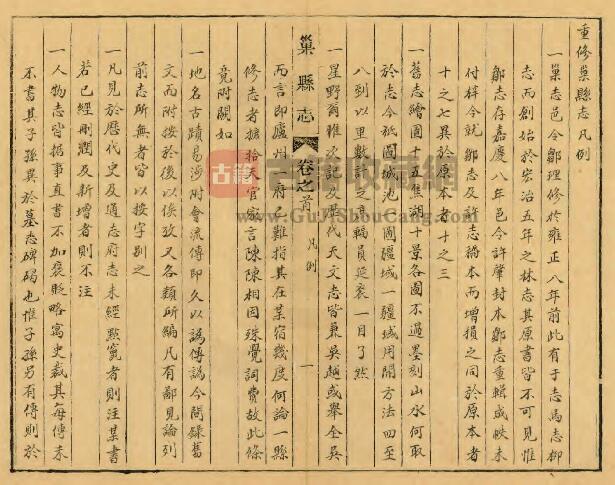 重修巢縣志凡例
一巢志邑令鄒理修於雍正八年前此有于志馬志柳
志而創始於宏治五年之林志其原書皆不可見惟
鄒志存嘉慶八年邑令許肇封本鄒志重輯成帙未
付梓今就鄒志及許志稿本而增損之同於原本者
十之七異於原本者十之三
一舊志繪圖十五焦湖十景各圖不過墨刻山水何取
於志今祇圖城池一圖疆域一疆域用開方法四至
八到以里數計之高輯員延袤一目了然
一星野爾雅次記及歷代天文志皆兼吳越或舉全吳
而言即廬州一府難指其在某宿幾度何論一縣
修志者摭拾天官家言陳陳相因殊覺詞費故此條
竟附闕如
巢縣志
卷之首 凡例
一
一地名古蹟易涉附會流傳即久以譌傳譌今閒錄舊
文而附按於後以俟攷又各類所編凡有鄙見論列
前志所無者皆以按字別之
一凡見於歷代史及通志府志未經點竄者則注某書
若已經刪潤及新增者則不注
一人物志皆据事直書不加褒貶略寓史裁其每傳末
不書其子孫異於墓志碑碣也惟子孫另有傳則於
古籍
古籍收藏網
www.GuJiShouCang.com